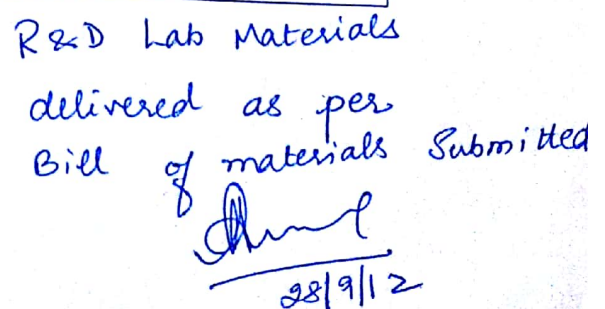 R&D Lab Materials
delivered as per
Bill of materials Submitted
28/9/12